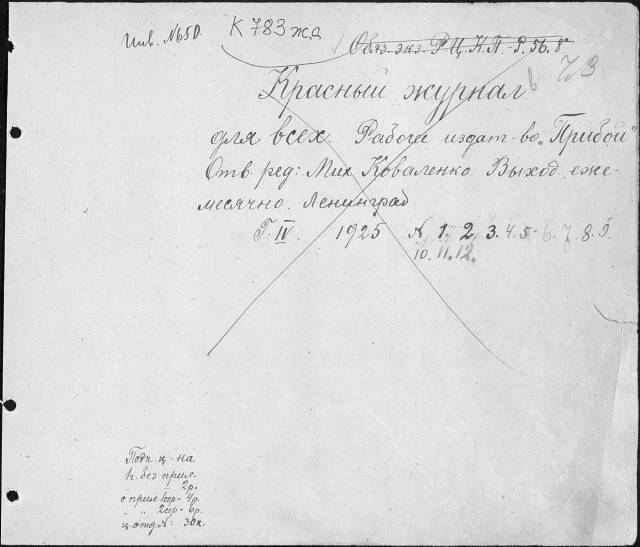 Инв. №650 К 783 жд
Обяз. экз. Р.Ц.К.П. - Р. 56. 8°
Красный журнал
для всех. Рабочее издат-во „Прибой"
Отв. ред: Мих Коваленко. Выход. еже-
месячно. Ленинград
Г. IV. 1925 N 1. 2. 3. 4. 5. 6. 7. 8. 9.
10. 11. 12.
Подп. ц-на
без прил.
2р.
с прил. 1сер - 4р.
„ „ 2сер - 6р.
ц. отд. N: 30к.